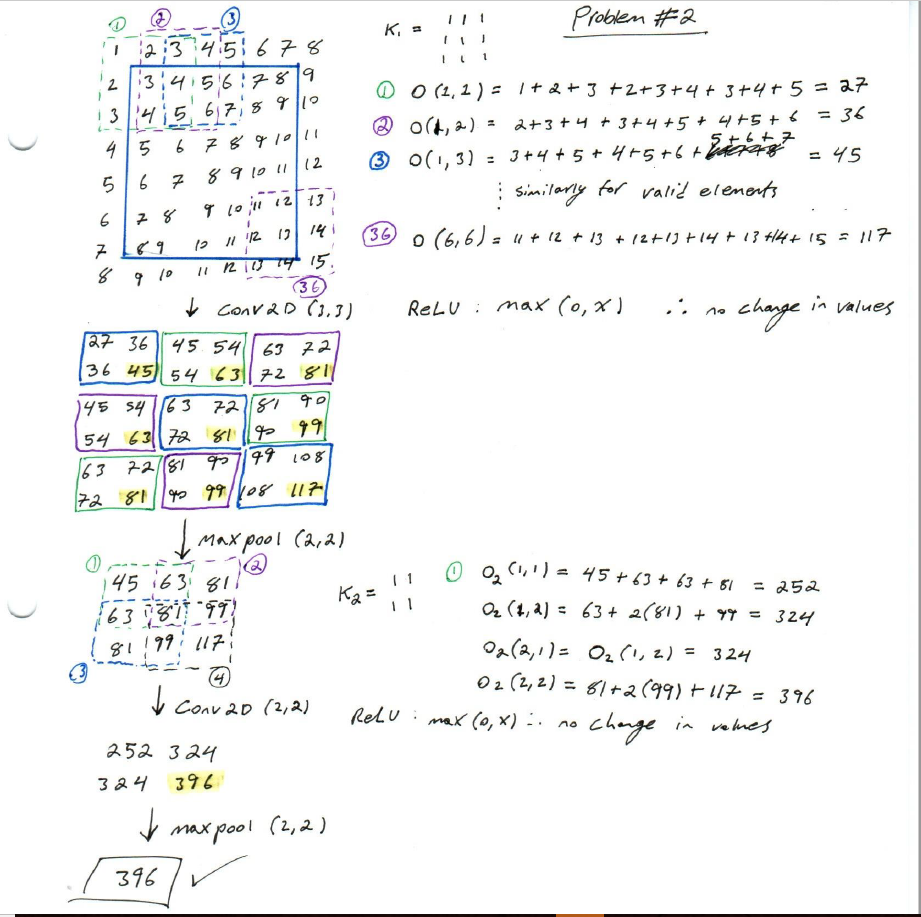 Problem #2
① ② ③
1 2 3 4 5 6 7 8
2 3 4 5 6 7 8 9
3 4 5 6 7 8 9 10
4 5 6 7 8 9 10 11
5 6 7 8 9 10 11 12
6 7 8 9 10 11 12 13
7 8 9 10 11 12 13 14
8 9 10 11 12 13 14 15
㊱
K₁ = 1 1 1
1 1 1
1 1 1
① O(1,1) = 1+2+3+2+3+4+3+4+5 = 27
② O(1,2) = 2+3+4+3+4+5+4+5+6 = 36
③ O(1,3) = 3+4+5+4+5+6+5+6+7 = 45
⋮ similarly for valid elements
㊱ O(6,6) = 11+12+13+12+13+14+13+14+15 = 117
↓ Conv2D (3,3)
ReLU : max(0,x) ∴ no change in values
27 36 45 54 63 72
36 45 54 63 72 81
45 54 63 72 81 90
54 63 72 81 90 99
63 72 81 90 99 108
72 81 90 99 108 117
↓ maxpool (2,2)
① ②
45 63 81
63 81 99
81 99 117
③ ④
K₂ = 1 1
1 1
① O₂(1,1) = 45+63+63+81 = 252
O₂(1,2) = 63+2(81)+99 = 324
O₂(2,1) = O₂(1,2) = 324
O₂(2,2) = 81+2(99)+117 = 396
↓ Conv2D (2,2)
ReLU : max(0,x) ∴ no change in values
252 324
324 396
↓ maxpool (2,2)
396 ✓